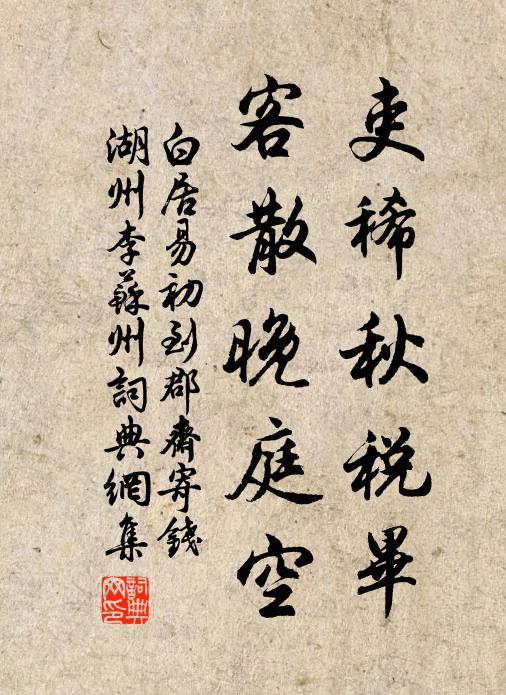 吏稀秋税畢
客散晚庭空
白居易初到郡齋寄錢
湖州李蘇州詞典網集
詞典网印